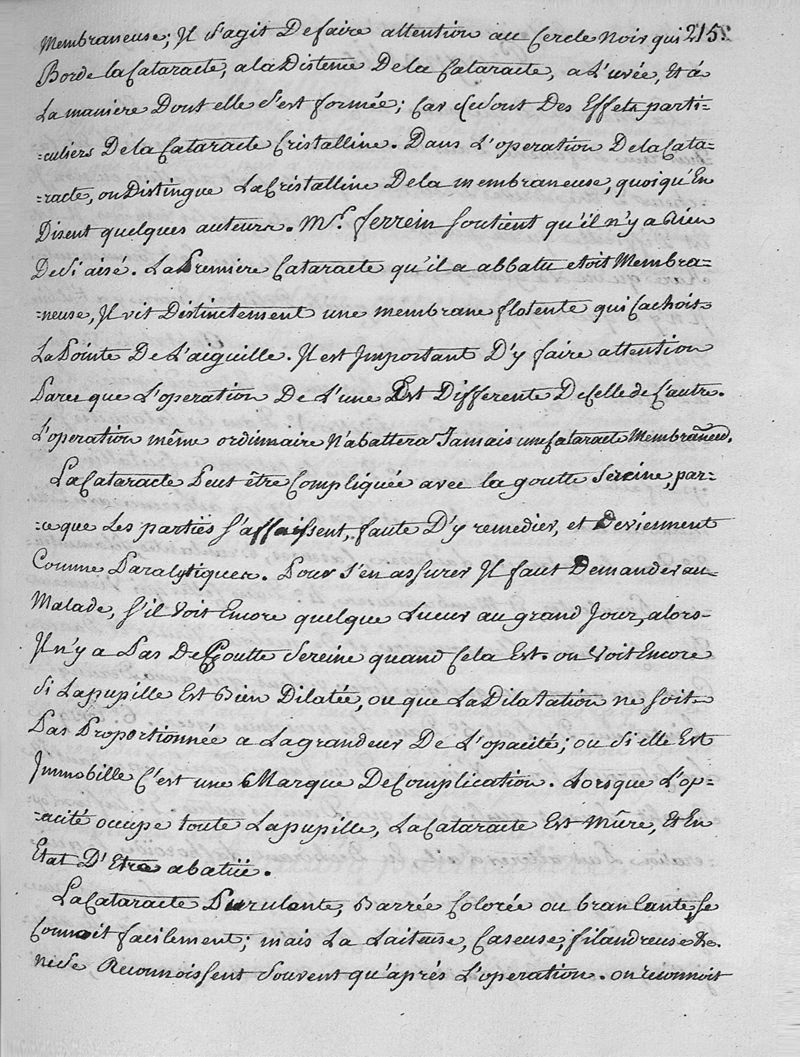 Membraneuse; Il s'agit De faire attention au Cercle Noir qui 215.
Borde la Cataracte, a la Distence De la Cataracte, a L'uvée, Et à
La maniere Dont elle s'est formée; Car Ce sont Des Effets parti-
-culiers De la Cataracte Cristalline. Dans L'operation De la Cata-
-racte, on Distingue La Cristalline De la membraneuse, quoiqu'En
Disent quelques auteurs. Mr. ferrein soutient qu'il n'y a Rien
De si aisé. La Premiere Cataracte qu'il a abbatu etoit Membra-
-neuse, Il vit Distinctement une membrane flotente qui Cachoit
La Pointe De L'aiguille. Il est Important D'y faire attention
Parce que L'operation De L'une Est Differente De Celle de L'autre.
L'operation même ordinnaire N'abattera Jamais une Cataracte Membraneuse.
La Cataracte Peut être Compliquée avec la goutte Sereine, par-
-ce que Les parties s'affaissent, faute D'y remedier, et Deviennent
Comme Paralytiques. Pour s'en assurer Il faut Demander au
Malade, s'il Voit Encore quelque Lueur au grand Jour, alors
Il n'y a Pas De Goutte Sereine quand Cela Est. on Voit Encore
Si La pupille Est Bien Dilatée, ou que La Dilatation ne soit
Pas Proportionnée a La grandeur De L'opacité; ou Si elle Est
Immobille C'est une Marque De Complication. Lorsque L'op-
-acité occupe toute La pupille, La Cataracte Est Mûre, Et En
Etat D'Etre abatüe.
La Cataracte Purulente, Barrée Colorée ou branlante, se
Connoit facilement; mais La Laiteuse, Caseuse, filandreuse &c.
ne se Reconnoissent Souvent qu'après L'operation. on reconnoit